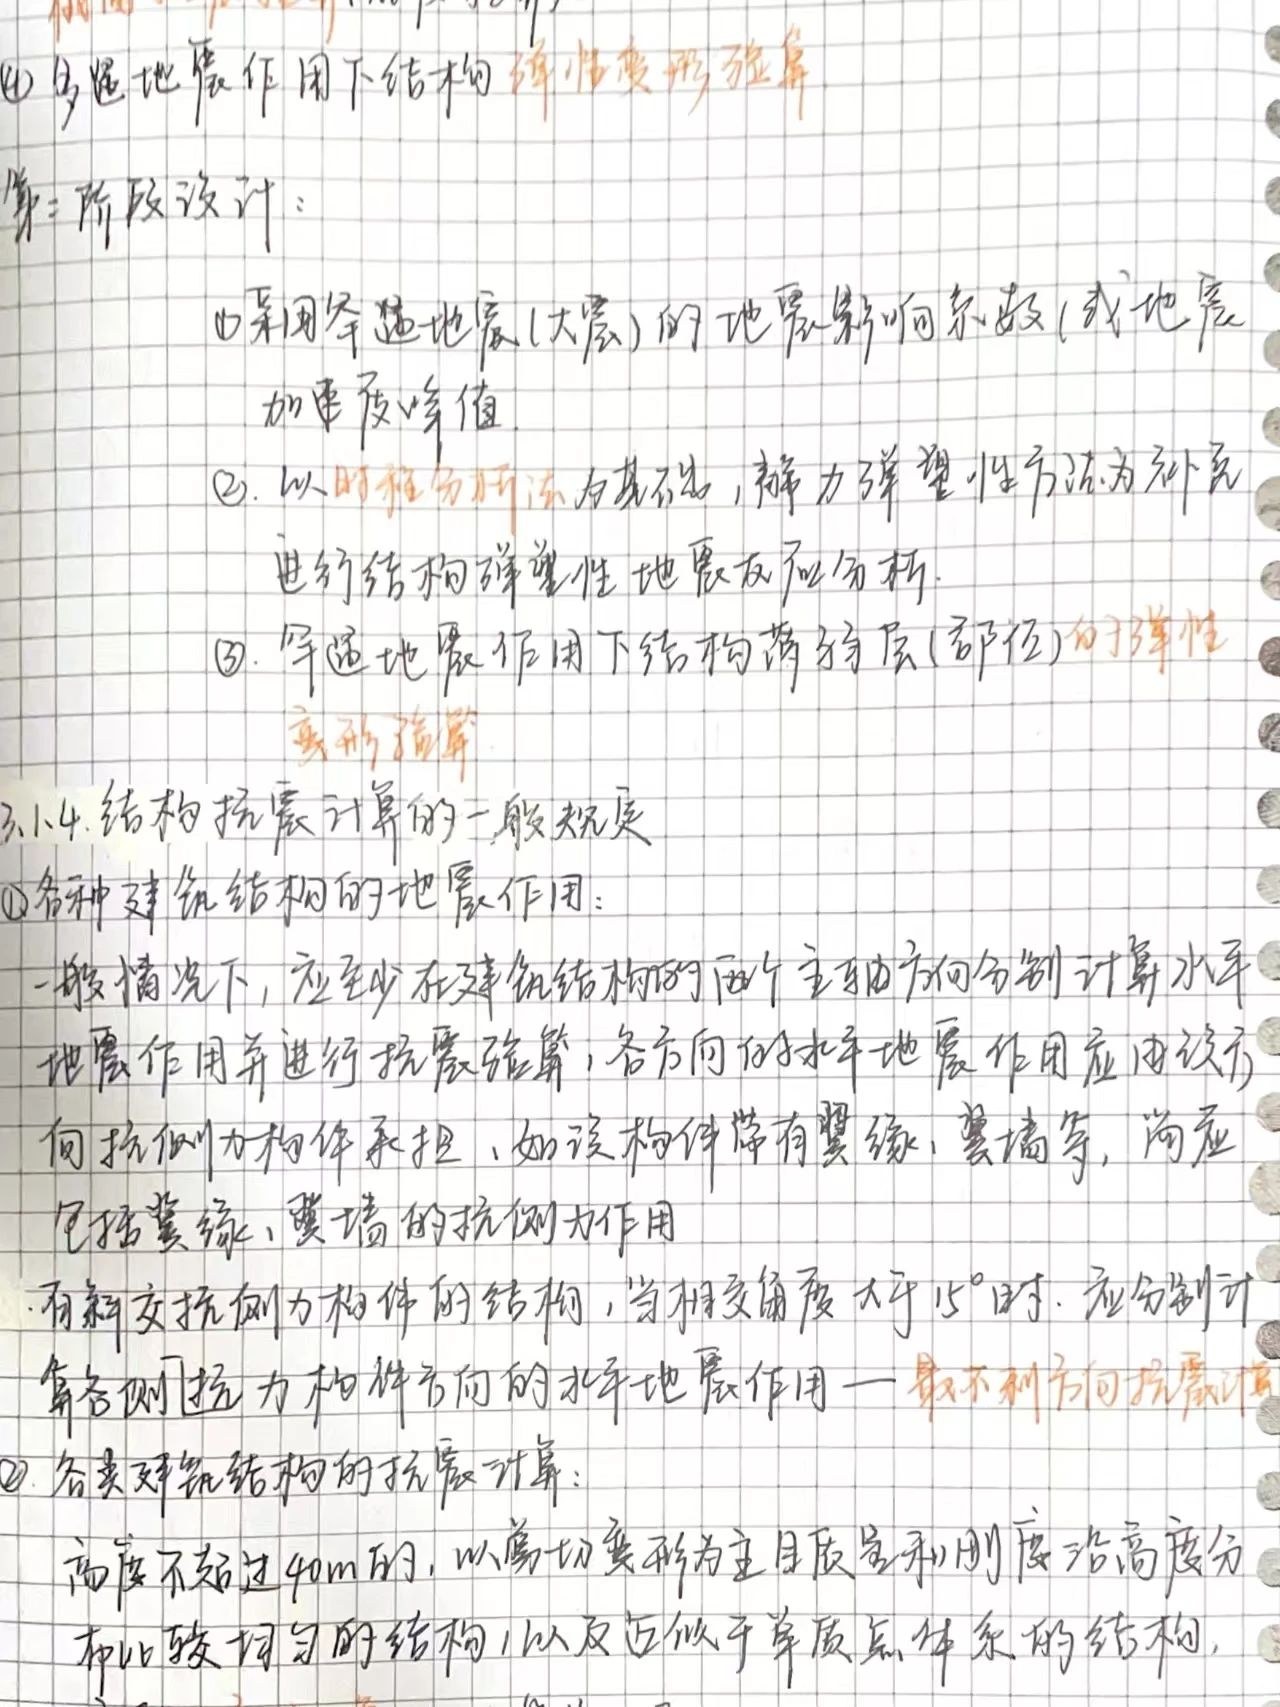 ④ 多遇地震作用下结构弹性变形验算
第二阶段设计：
① 采用罕遇地震(大震)的地震影响系数(或地震
加速度峰值
②. 以时程分析法为基础，静力弹塑性方法为补充
进行结构弹塑性地震反应分析.
③. 罕遇地震作用下结构薄弱层(部位)的弹性
变形验算
3.1.4.结构抗震计算的一般规定
①各种建筑结构的地震作用：
一般情况下，应至少在建筑结构的两个主轴方向分别计算水平
地震作用并进行抗震验算，各方向的水平地震作用应由该方
向抗侧力构件承担、如该构件带有翼缘、翼墙等，尚应
包括翼缘、翼墙的抗侧力作用
.有斜交抗侧力构件的结构，当相交角度大于15°时.应分别计
算各侧抗力构件方向的水平地震作用—最不利方向抗震计算
②.各类建筑结构的抗震计算：
高度不超过40m的，以剪切变形为主且质量和刚度沿高度分
布比较均匀的结构，以及近似于单质点体系的结构，